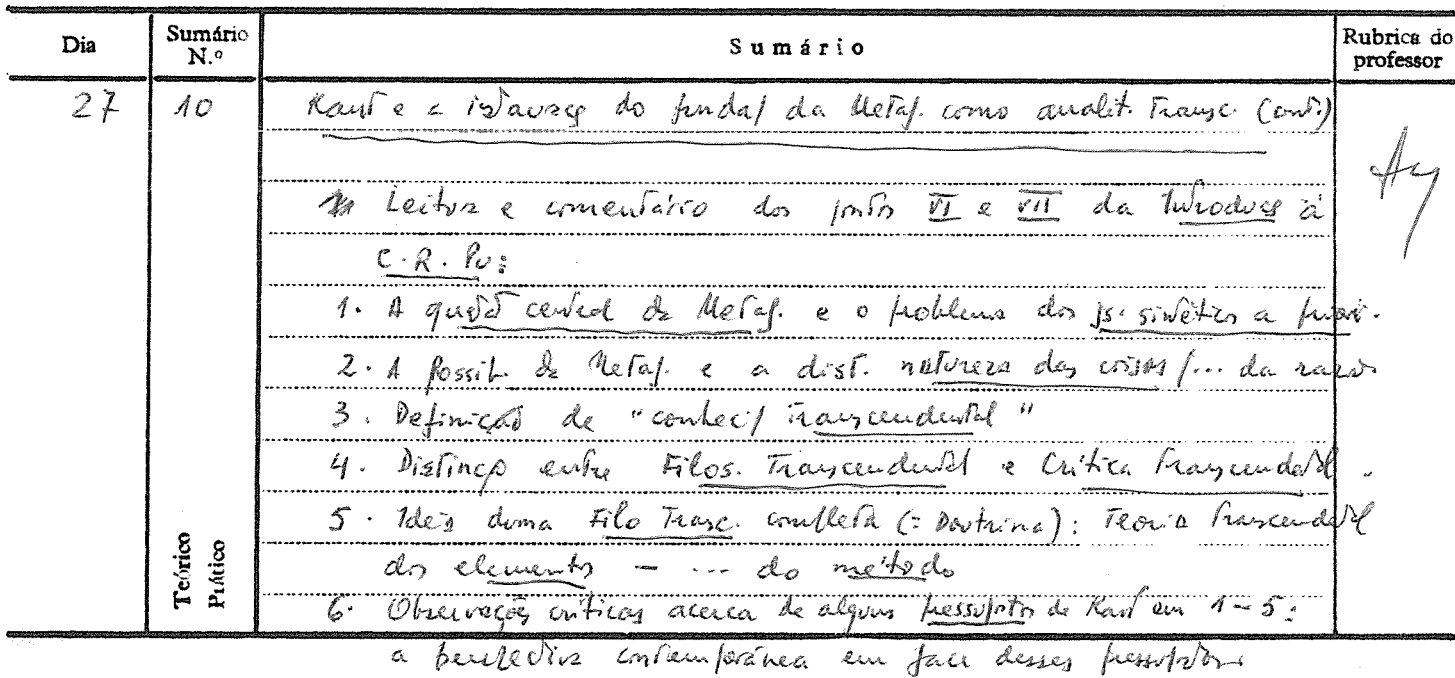 Dia Sumário N.º Sumário Rubrica do professor
27 10 Kant e a do funda/ da Metaf. como analít. Transc. (cont.)
Leitura e comentário dos pontos VI e VII da Introduç à
C. R. Pu:
1. A questã central da Metaf. e o problema dos js. sintéticos a priori.
2. A Possib. da Metaf. e a dist. natureza das coisas /... da razão
3. Definição de "conheci/ transcendental"
4. Distinçº entre Filos. Transcendental e Crítica Transcendental.
5. Ideia duma Filo Transc. completa (= Doutrina): Teoria Transcendental
dos elementos - ... do método
6. Observações críticas acerca de alguns pressupostos de Kant em 1-5:
a perspectiva contemporânea em face desses pressupostos.
Teórico
Prático